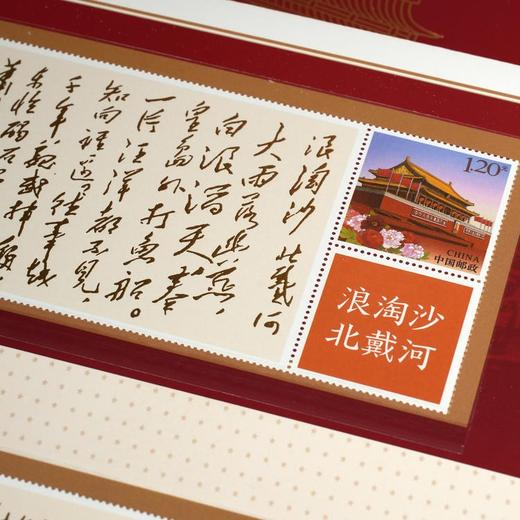 浪淘沙 北戴河
大雨落幽燕，
白浪滔天，秦
皇島外打魚船。
一片汪洋都不見，
知向誰邊？往事越
千年，魏武揮鞭，
東臨碣石
1.20元
CHINA
中国邮政
浪淘沙
北戴河